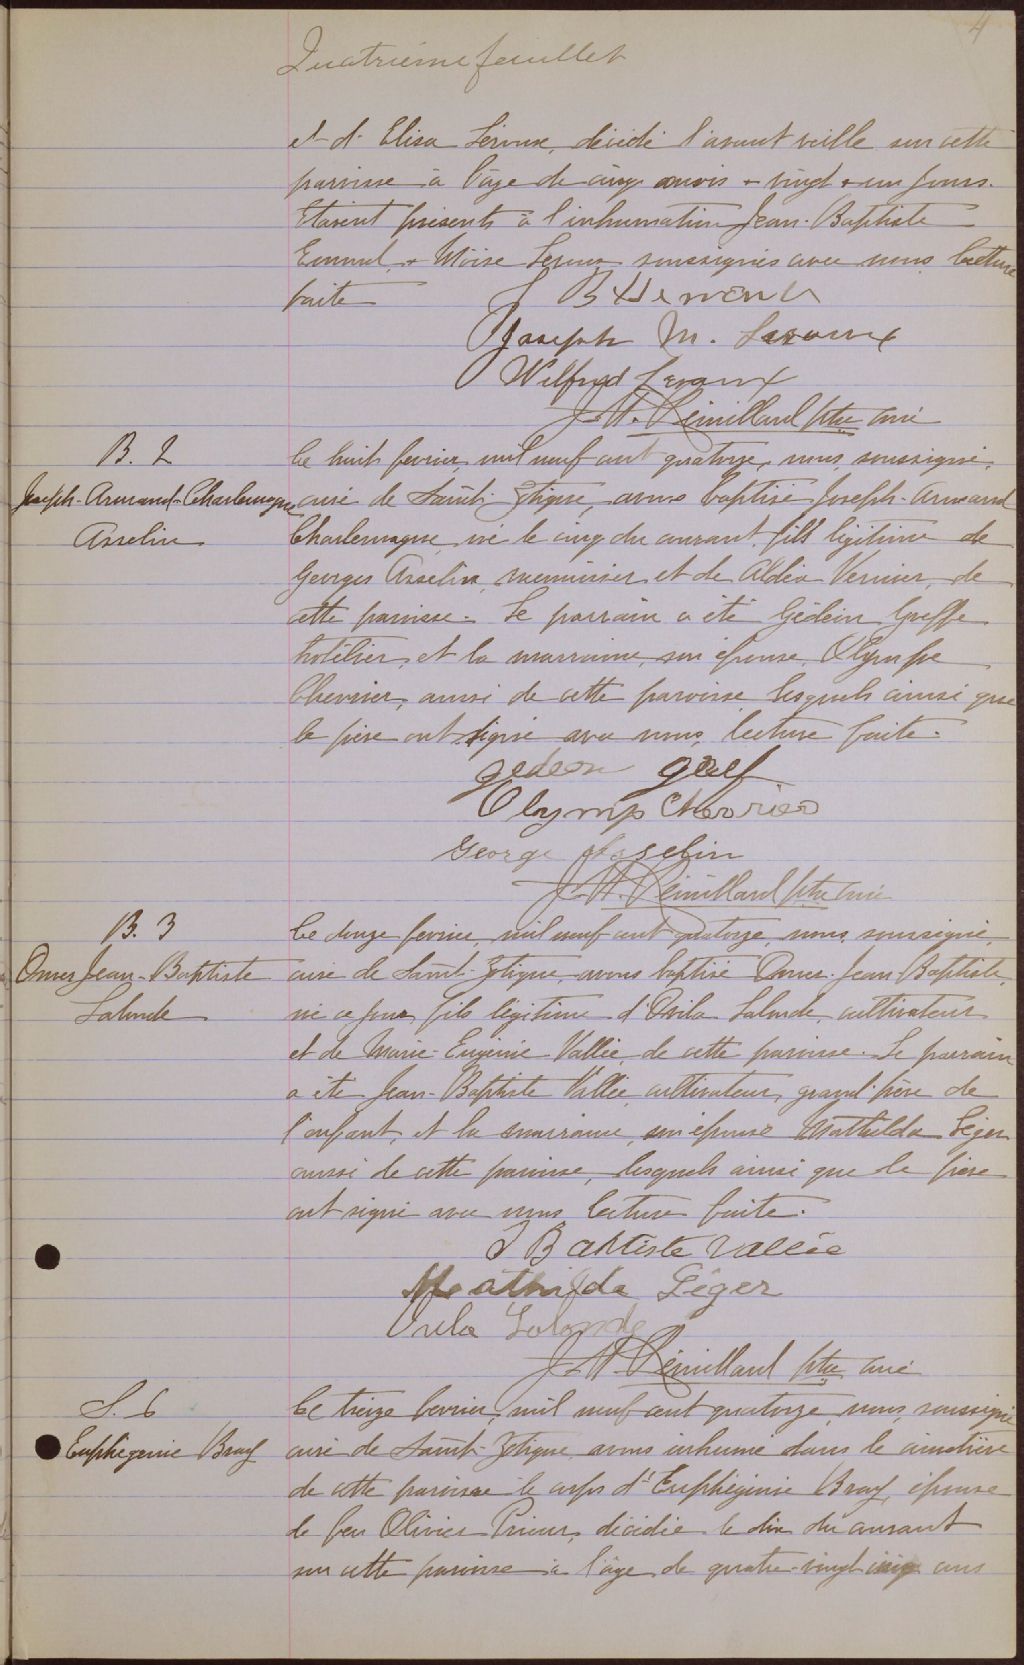 4
Quatrième feuillet
et d' Elisa Leroux, décédé l'avant veille sur cette
paroisse à l'âge de cinq mois & vingt & un jours.
Etaient présents à l'inhumation Jean-Baptiste
& Moïse Leroux soussignés avec nous lecture
faite
Joseph M. Leroux
Wilfrid Leroux
J. H. Rémillard ptre curé
B. 2
Joseph-Armand-Charlemagne
Asselin
Le huit février, mil neuf cent quatorze, nous, soussigné,
curé de Saint-Zotique, avons baptisé Joseph-Armand
Charlemagne, né le cinq du courant, fils légitime de
Georges Asselin, menuisier et de Aldéa Vernier, de
cette paroisse. Le parrain a été Gédéon Greffe
hôtelier, et la marraine, son épouse, Olympe
Chevrier, aussi de cette paroisse, lesquels ainsi que
le père ont signé avec nous, lecture faite.
gedeon gref
Olymp Chevrier
George Asselin
J. H. Rémillard ptre curé
B. 3
Omer Jean-Baptiste
Lalonde
Le douze février, mil neuf cent quatorze, nous, soussigné,
curé de Saint-Zotique, avons baptisé Omer-Jean Baptiste,
né ce jour, fils légitime d'Ovila Lalonde, cultivateur
et de Marie-Eugénie Vallée, de cette paroisse. Le parrain
a été Jean-Baptiste Vallée, cultivateur, grand'père de
l'enfant, et la marraine, son épouse Mathilda Léger
aussi de cette paroisse, lesquels ainsi que le père
ont signé avec nous lecture faite.
J Baptiste vallée
Mathilda Léger
Ovila Lalonde
J. H. Rémillard ptre curé
S. 6
Euphégenie Bray
Le treize février, mil neuf cent quatorze, nous, soussigné
curé de Saint-Zotique, avons inhumé dans le cimetière
de cette paroisse le corps d'Euphégenie Bray, épouse
de feu Olivier Prieur, décédée le dix du courant
sur cette paroisse à l'âge de quatre-vingt cinq ans